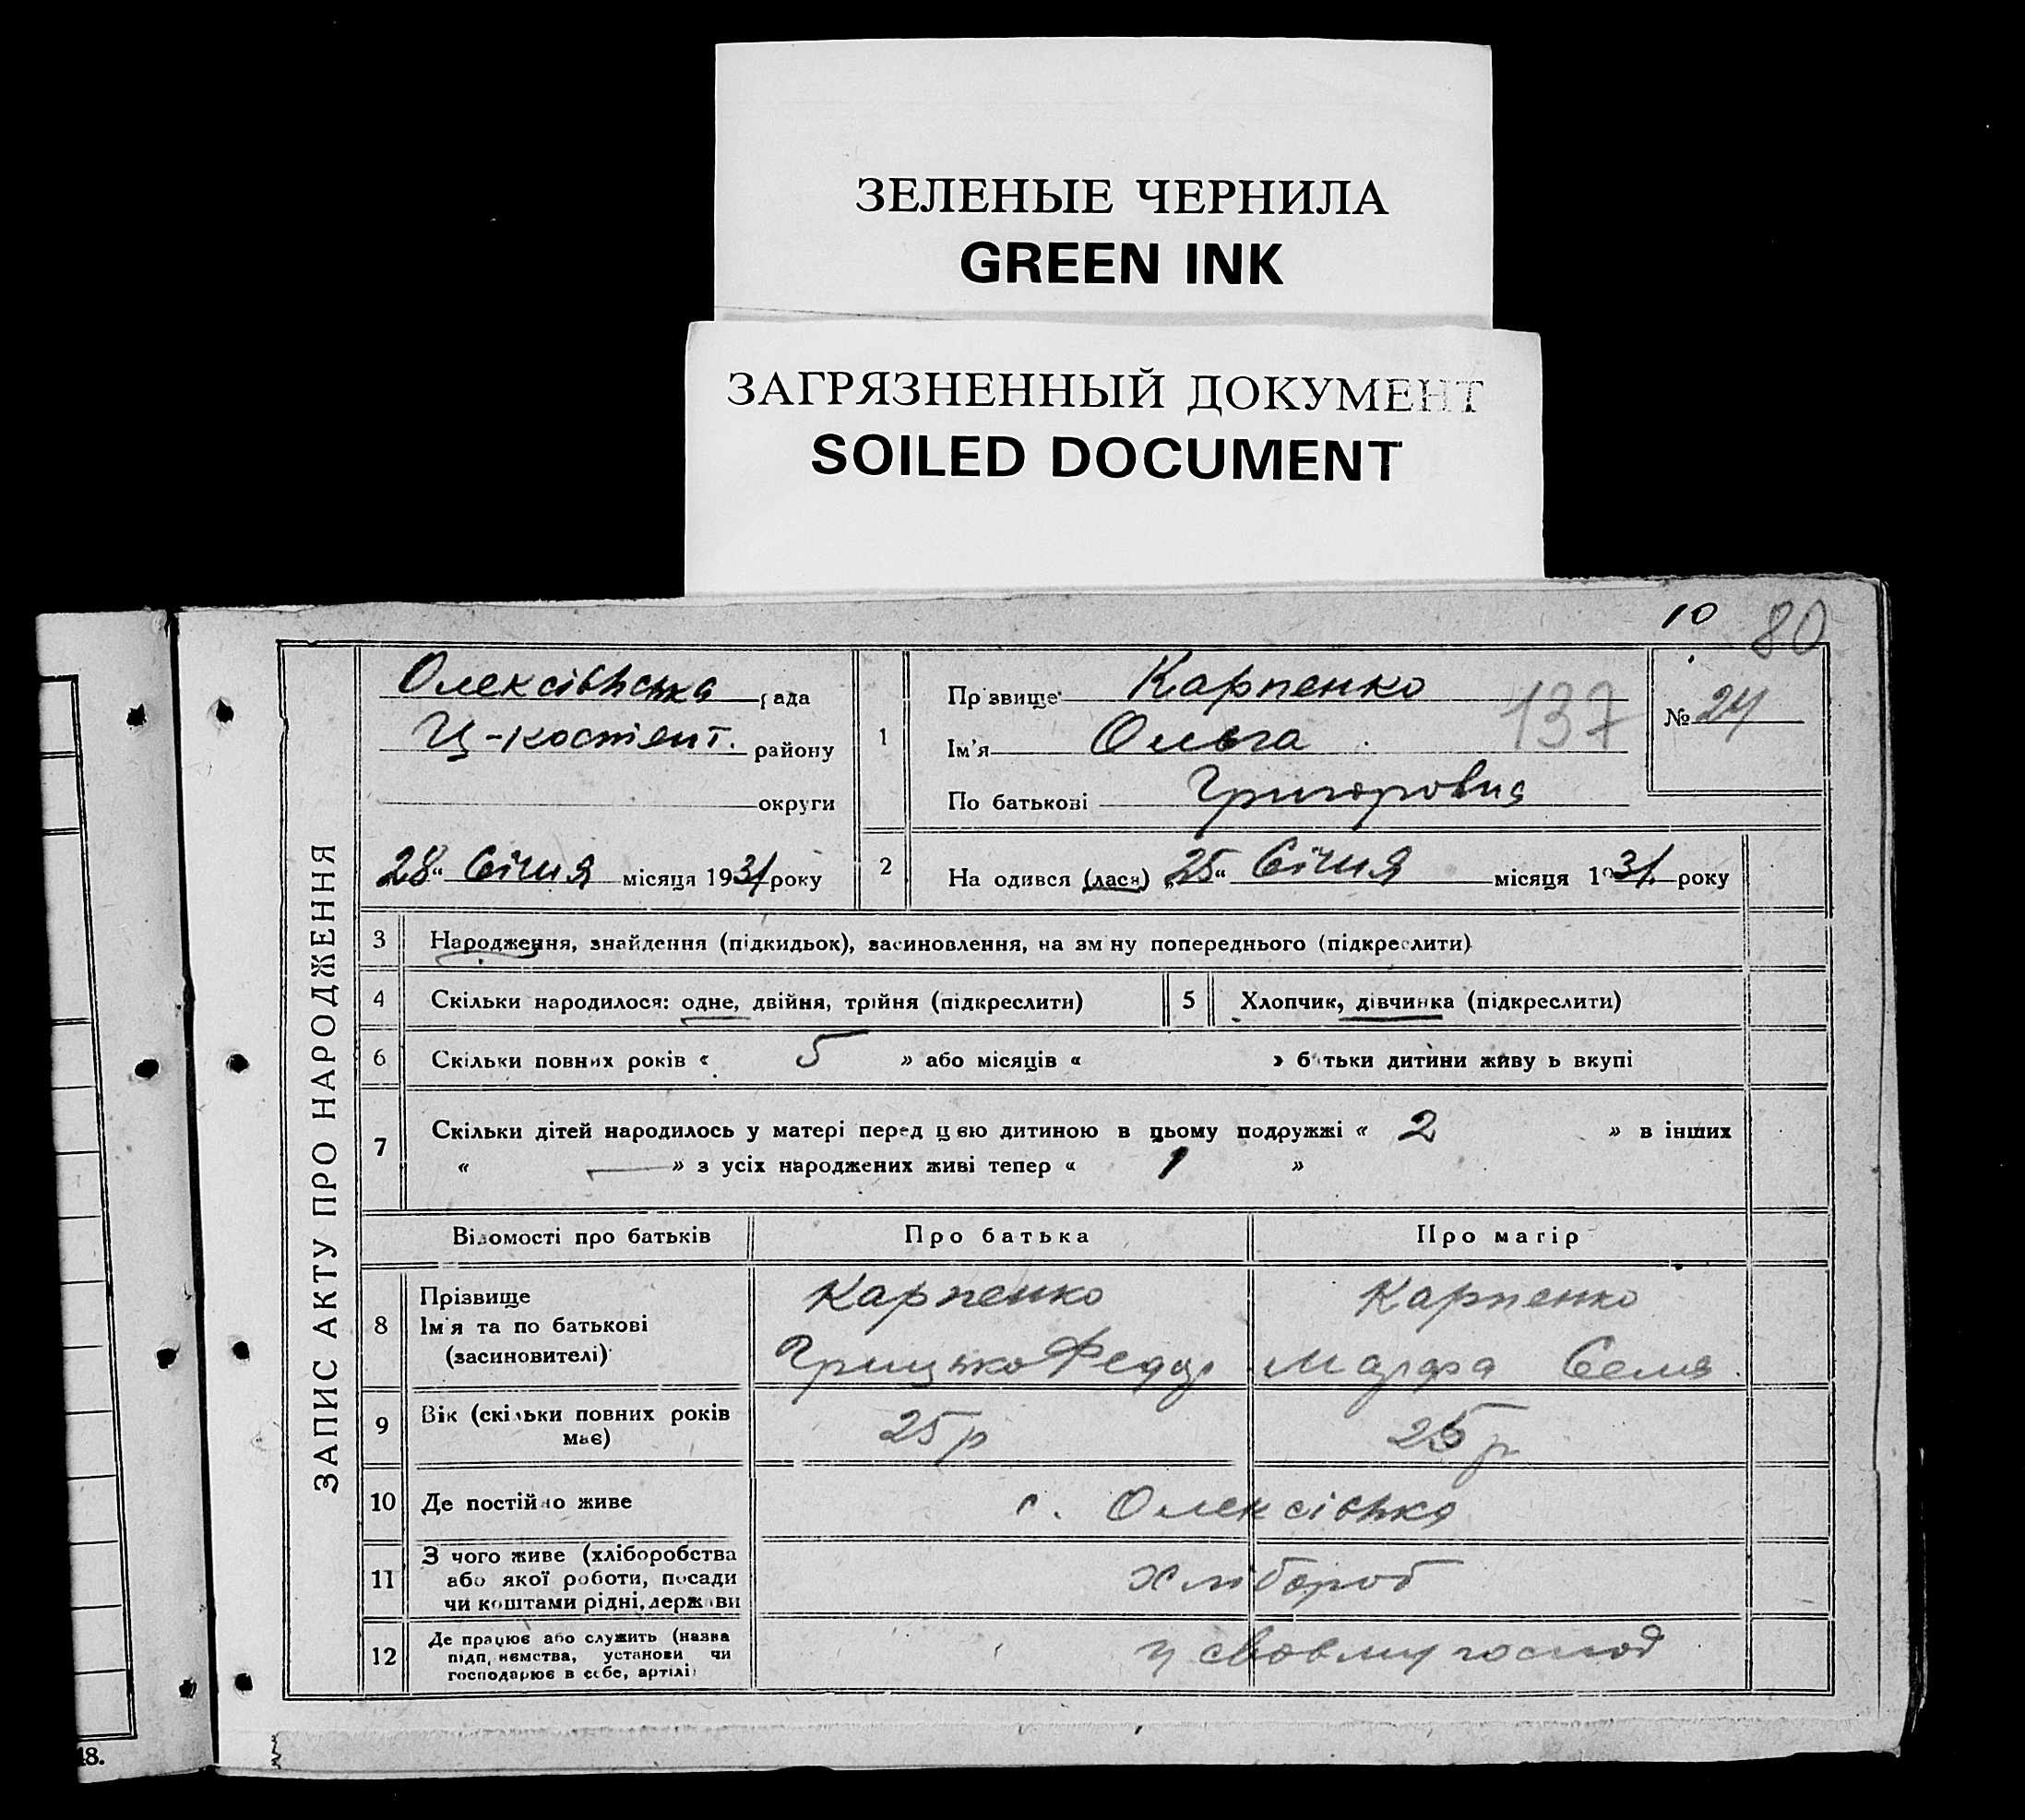 ЗЕЛЕНЫЕ ЧЕРНИЛА
GREEN INK
ЗАГРЯЗНЕННЫЙ ДОКУМЕНТ
SOILED DOCUMENT
10 80
ЗАПИС АКТУ ПРО НАРОДЖЕННЯ
Олексівська рада
Ц-костянт. району
округи
28 " Січня місяця 1931 року
1
Прізвище Карпенко
Ім'я Ольга
По батькові Григоровна
137
№ 24
2
На одився (лася) „25" Січня місяця 1931. року
3 Народження, знайдення (підкидьок), засиновлення, на зм ну попереднього (підкреслити)
4 Скільки народилося: одне, двійня, трійня (підкреслити)
5 Хлопчик, дівчинка (підкреслити)
6 Скільки повних років « 5 » або місяців « » батьки дитини живу ь вкупі
7 Скільки дітей народилось у матері перед цією дитиною в цьому подружжі « 2 » в інших
« — » з усіх народжених живі тепер « 1 »
Відомості про батьків Про батька Про матір
8 Прізвище
Ім'я та по батькові
(засиновителі)
Карпенко
Грицько Федор
Карпенко
Марфа Семе.
9 Вік (скільки повних років
має)
25 р
25 р
10 Де постійно живе с. Олексівка
11 З чого живе (хліборобства
або якої роботи, посади
чи коштами рідні, держави
хлібороб
12 Де працює або служить (назва
підп, ємства, установи чи
господарює в себе, артілі)
у своєму господ
48.